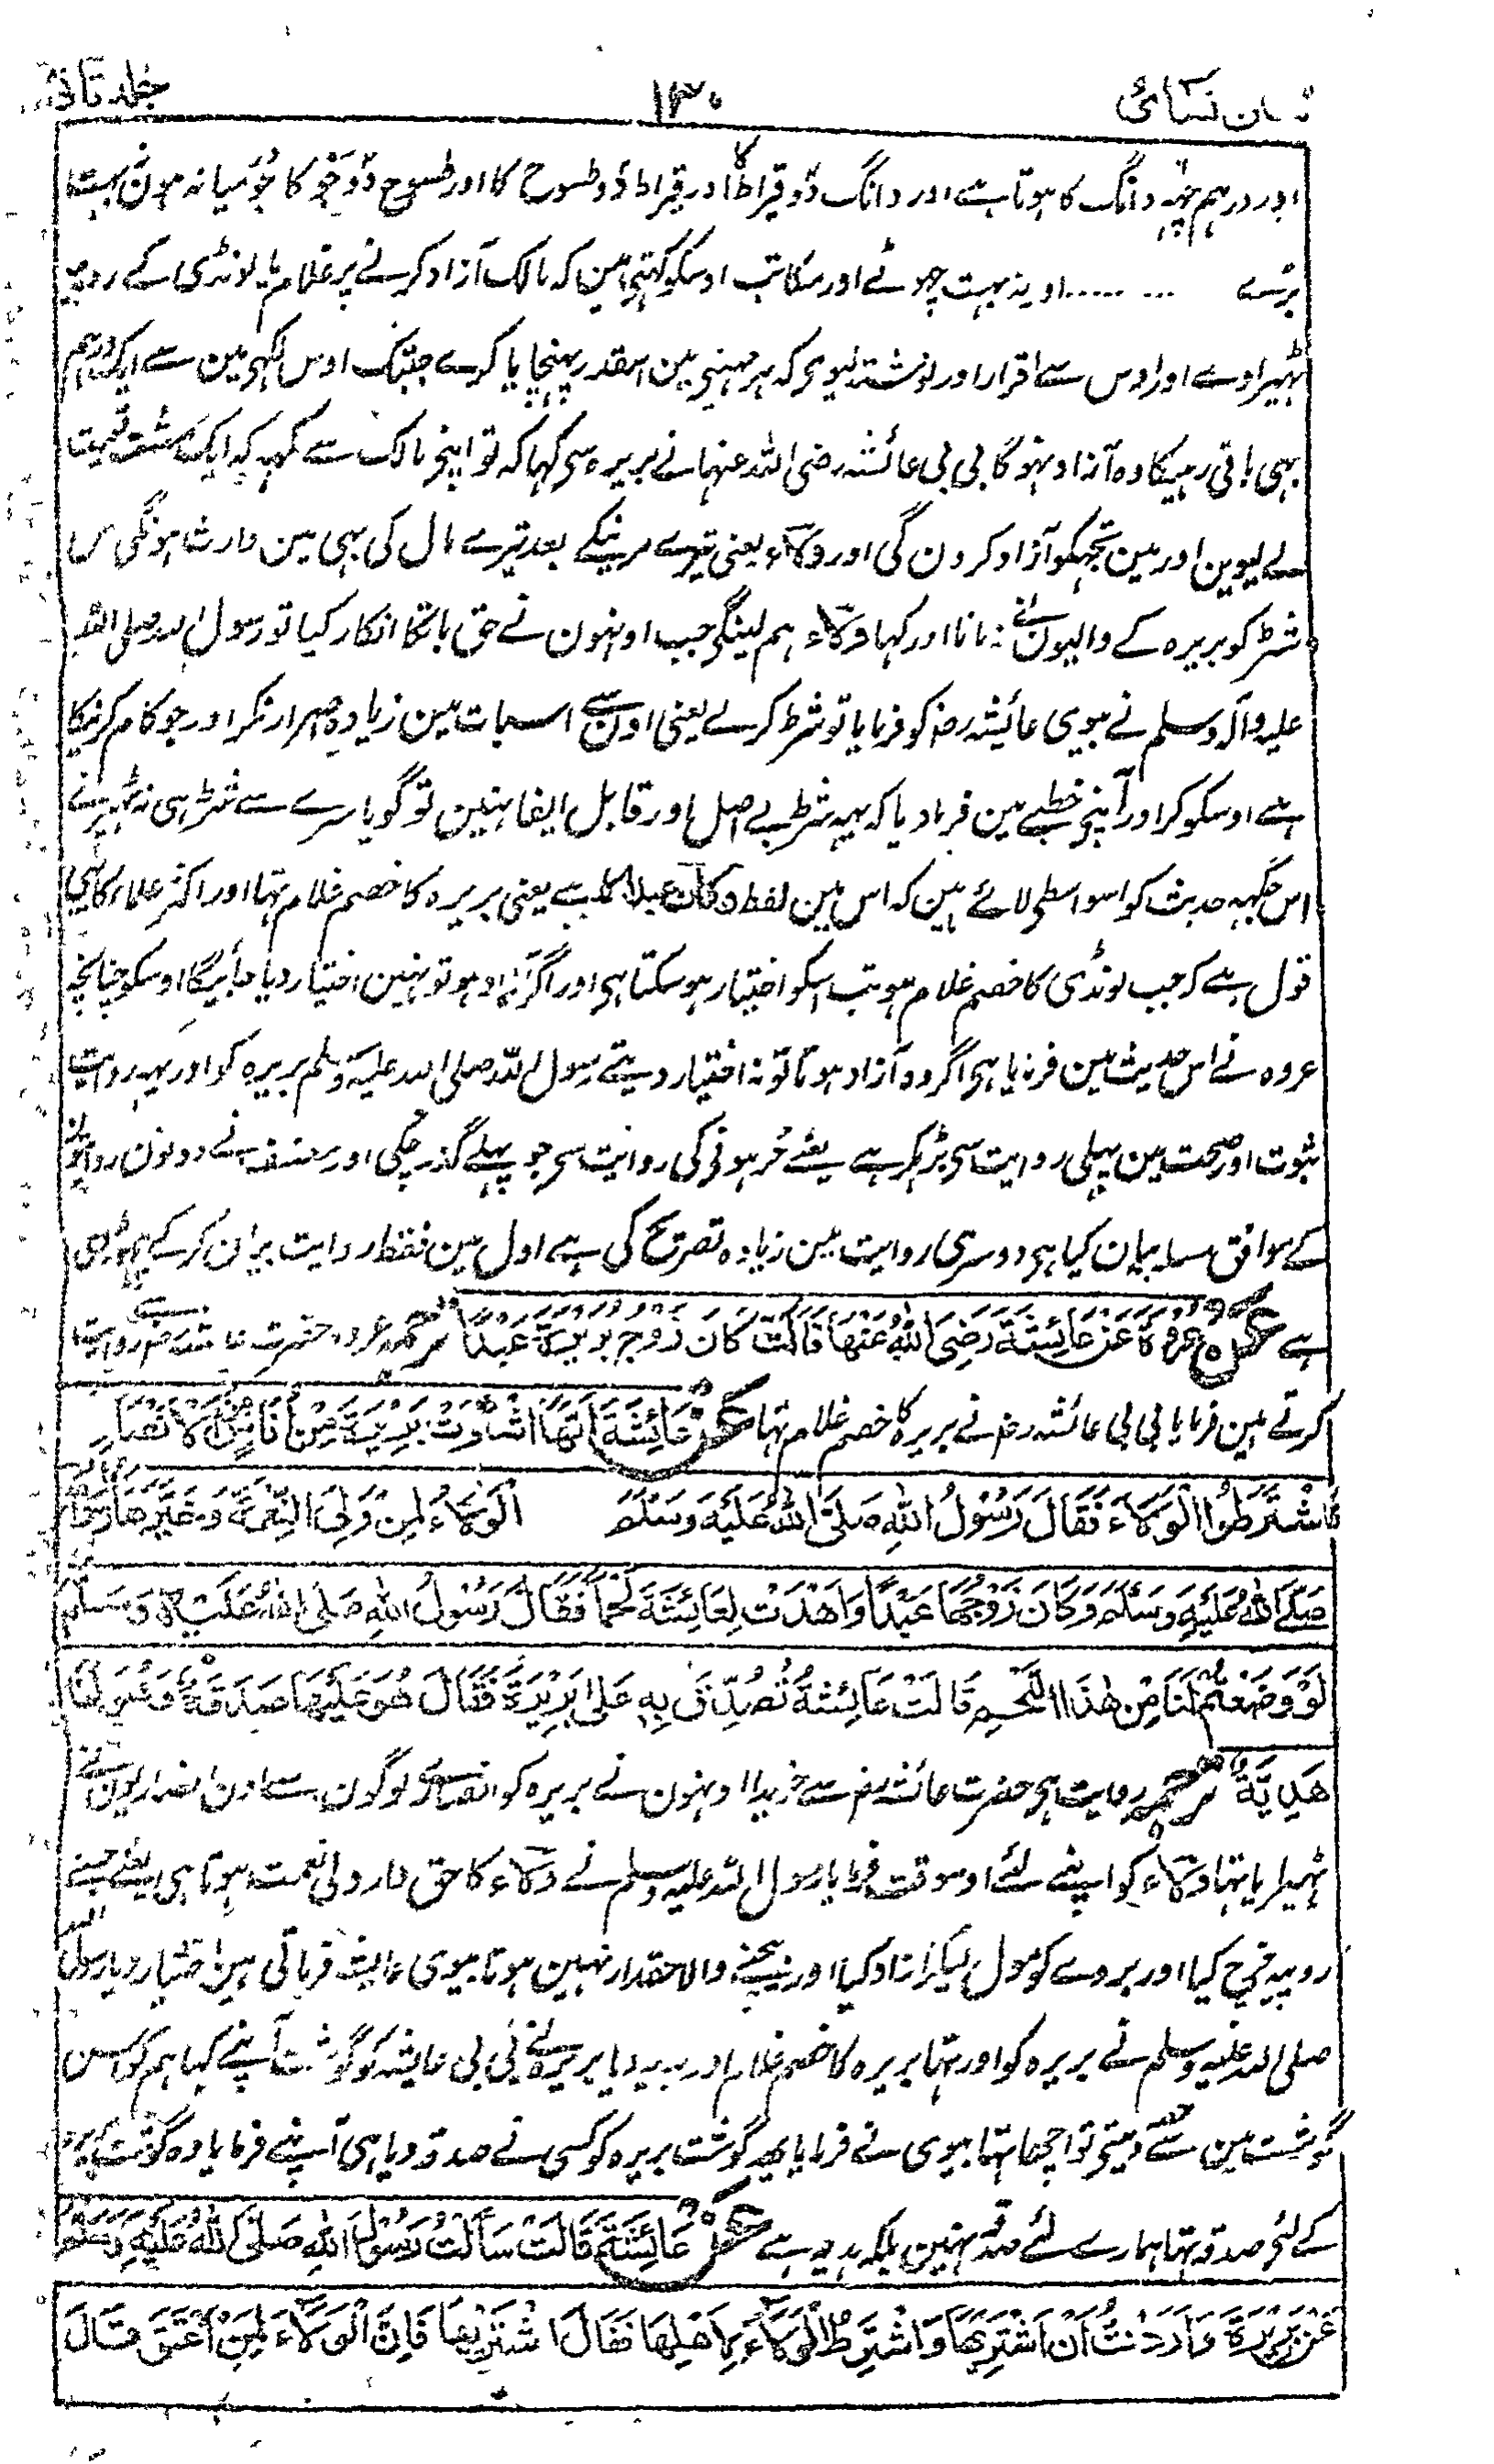 نسائی ۱۳۰ جلد ثانی
اور درہم چہہ دانگ کا ہوتا ہے اور دانگ دو قیراط کا اور قیراط دو طسوج کا اور طسوج دو جو کا جو میانہ ہون بہت
بڑے ... ..... اور نہ بہت چہوٹے اور مکاتب اوسکو کہتی ہین کہ مالک آزاد کرنے پر غلام یا لونڈی کے روپیہ
ٹہیراوے اور اوس سے اقرار اور نوشتہ لیوی کہ ہر مہینی مین اسقدر پہنچایا کرے جبتک اوس لکہی مین سے ایک درہم
بہی باقی رہیگا وہ آزاد نہوگا بی بی عائشہ رضی اللہ عنہا نے بریرہ سی کہا کہ تو اپنی مالک سے کہہ کہ ایک مشت قیمت
لے لیوین اور مین تجہکو آزاد کردن گی اور ولاء یعنی تیرے مرنیکے بعد تیرے مال کی بہی مین وارث ہونگی اس
شرط کو بریرہ کے والیون نے نہ مانا اور کہا ولاء ہم لینگی جب اونہون نے حق باتکا انکار کیا تو رسول اللہ صلی اللہ
علیہ وآلہ وسلم نے بیوی عائشہ رضہ کو فرمایا تو شرط کرلے یعنی اون سے اسبات مین زیادہ اصرار نکر اور جو کام کرنیکا
ہے اوسکو کر اور آپنی خطبے مین فرمادیا کہ یہہ شرط بے اصل اور قابل ایفا نہین تو گویا سرے سے شرط ہی نہ ٹہیرے
اس جگہہ حدیث کو اسواسطی لائے ہین کہ اس مین لفظ وکان عبدا کا ہے یعنی بریرہ کا خصم غلام تہا اور اکثر علماء کا یہی
قول ہے کہ جب لونڈی کا خصم غلام ہو تب اسکو اختیار ہو سکتا ہی اور اگر آزاد ہو تو نہین اختیار دیا جائیگا اوسکو چنانچہ
عروہ نے اس حدیث مین فرمایا ہی اگر وہ آزاد ہوتا تو نہ اختیار دیتے رسول اللہ صلی اللہ علیہ وسلم بریرہ کو اور یہہ روایت
ثبوت اور صحت مین پہلی روایت سی بڑہکر ہے یعنے حُر ہونی کی روایت سی جو پہلے گذر چکی اور مصنف نے دونون روایتون
کے موافق مسلہ بیان کیا ہی دوسری روایت مین زیادہ تصریح کی ہے اول مین فقط روایت بیان کرکے چہوڑدی
ہے عن عُروة عَن عَائِشَةَ رَضِيَ اللهُ عَنْهَا قَالَتْ كَانَ زَوْجُ بَرِيرَةَ عَبْدًا ترجمہ عروہ حضرت عائشہ رضہ سے روایت
کرتے ہین فرمایا بی بی عائشہ رضہ نے بریرہ کا خصم غلام تہا عن عَائِشَةَ اَنَّهَا اشْتَرَتْ بَرِيْرَةَ مِنْ اُنَاسٍ مِّنَ الْاَنْصَارِ
فَاشْتَرَطُوا الْوَلَاءَ فَقَالَ رَسُوْلُ اللهِ صَلَّى اللهُ عَلَيْهِ وَسَلَّمَ الْوَلَاءُ لِمَنْ وَلِيَ النِّعْمَةَ وَخَيَّرَهَا رَسُوْلُ اللهِ
صَلَّى اللهُ عَلَيْهِ وَسَلَّمَ وَكَانَ زَوْجُهَا عَبْدًا وَاَهْدَتْ لِعَائِشَةَ لَحْمًا فَقَالَ رَسُوْلُ اللهِ صَلَّى اللهُ عَلَيْهِ وَسَلَّمَ
لَوْ وَضَعْتُمْ لَنَا مِنْ هٰذَا اللَّحْمِ قَالَتْ عَائِشَةُ تُصُدِّقَ بِهِ عَلٰى بَرِيْرَةَ فَقَالَ هُوَ عَلَيْهَا صَدَقَةٌ وَهُوَ لَنَا
هَدِيَّةٌ ترجمہ روایت ہی حضرت عائشہ رضہ سے خریدا اونہون نے بریرہ کو انصاری لوگون سے اون انصاریون نے
ٹہیرایا تہا ولاء کو اپنے لئے اوسوقت فرمایا رسول اللہ علیہ وسلم نے ولاء کا حق دار ولی نعمت ہوتا ہی یعنے جسنے
روپیہ خرچ کیا اور بردے کو مول لیکر آزاد کیا اور بیچنے والا حقدار نہین ہوتا بیوی عائشہ فرماتی ہین اختیار دیا رسول اللہ
صلی اللہ علیہ وسلم نے بریرہ کو اور تہا بریرہ کا خصم غلام اور ہدیہ دیا بریرہ نے بی بی عائشہ کو گوشت آپنے کہا ہم کو اس
گوشت مین سے حصہ دیتی تو اچہا تہا بیوی نے فرمایا یہہ گوشت بریرہ کو کسی نے صدقہ دیا ہی آپنے فرمایا وہ گوشت بریرہ
کے لئی صدقہ تہا ہمارے لئے صدقہ نہین بلکہ ہدیہ ہے عن عَائِشَةَ قَالَتْ سَأَلْتُ رَسُوْلَ اللهِ صَلَّى اللهُ عَلَيْهِ وَسَلَّمَ
عَنْ بَرِيْرَةَ وَاَرَدْتُ اَنْ اَشْتَرِيَهَا وَاشْتُرِطَ الْوَلَاءُ لِاَهْلِهَا فَقَالَ اشْتَرِيْهَا فَاِنَّ الْوَلَاءَ لِمَنْ اَعْتَقَ قَالَ